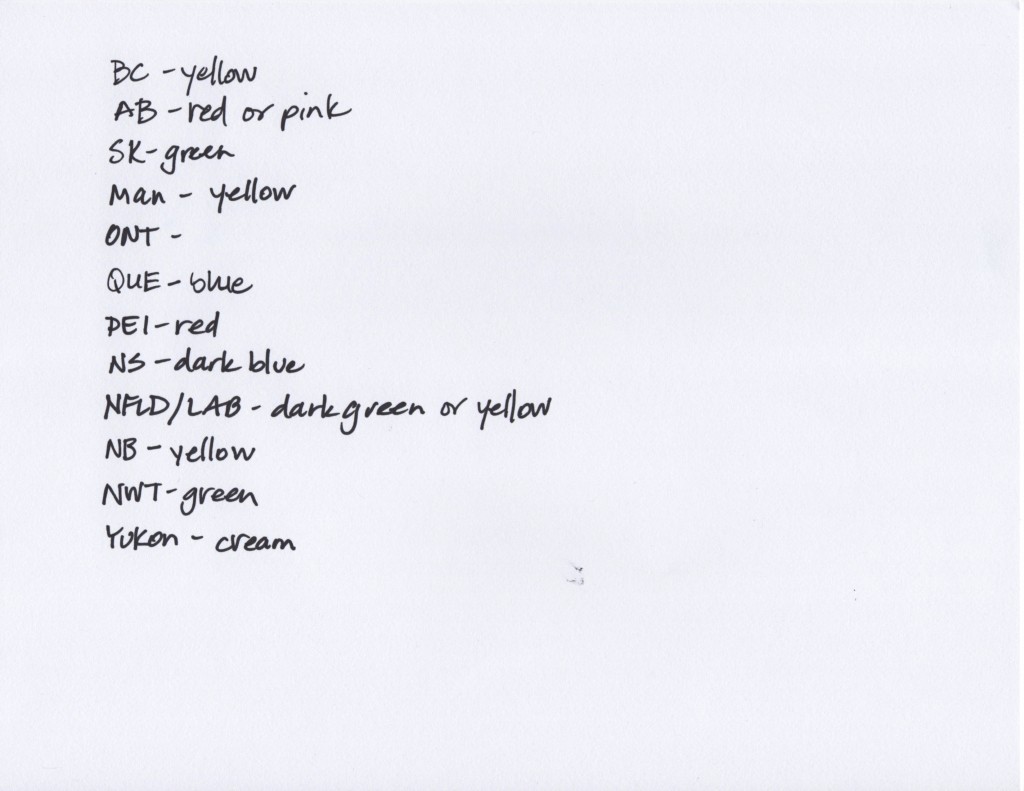 BC - yellow
AB - red or pink
SK - green
Man - yellow
ONT -
QUE - blue
PEI - red
NS - dark blue
NFLD/LAB - dark green or yellow
NB - yellow
NWT - green
Yukon - cream